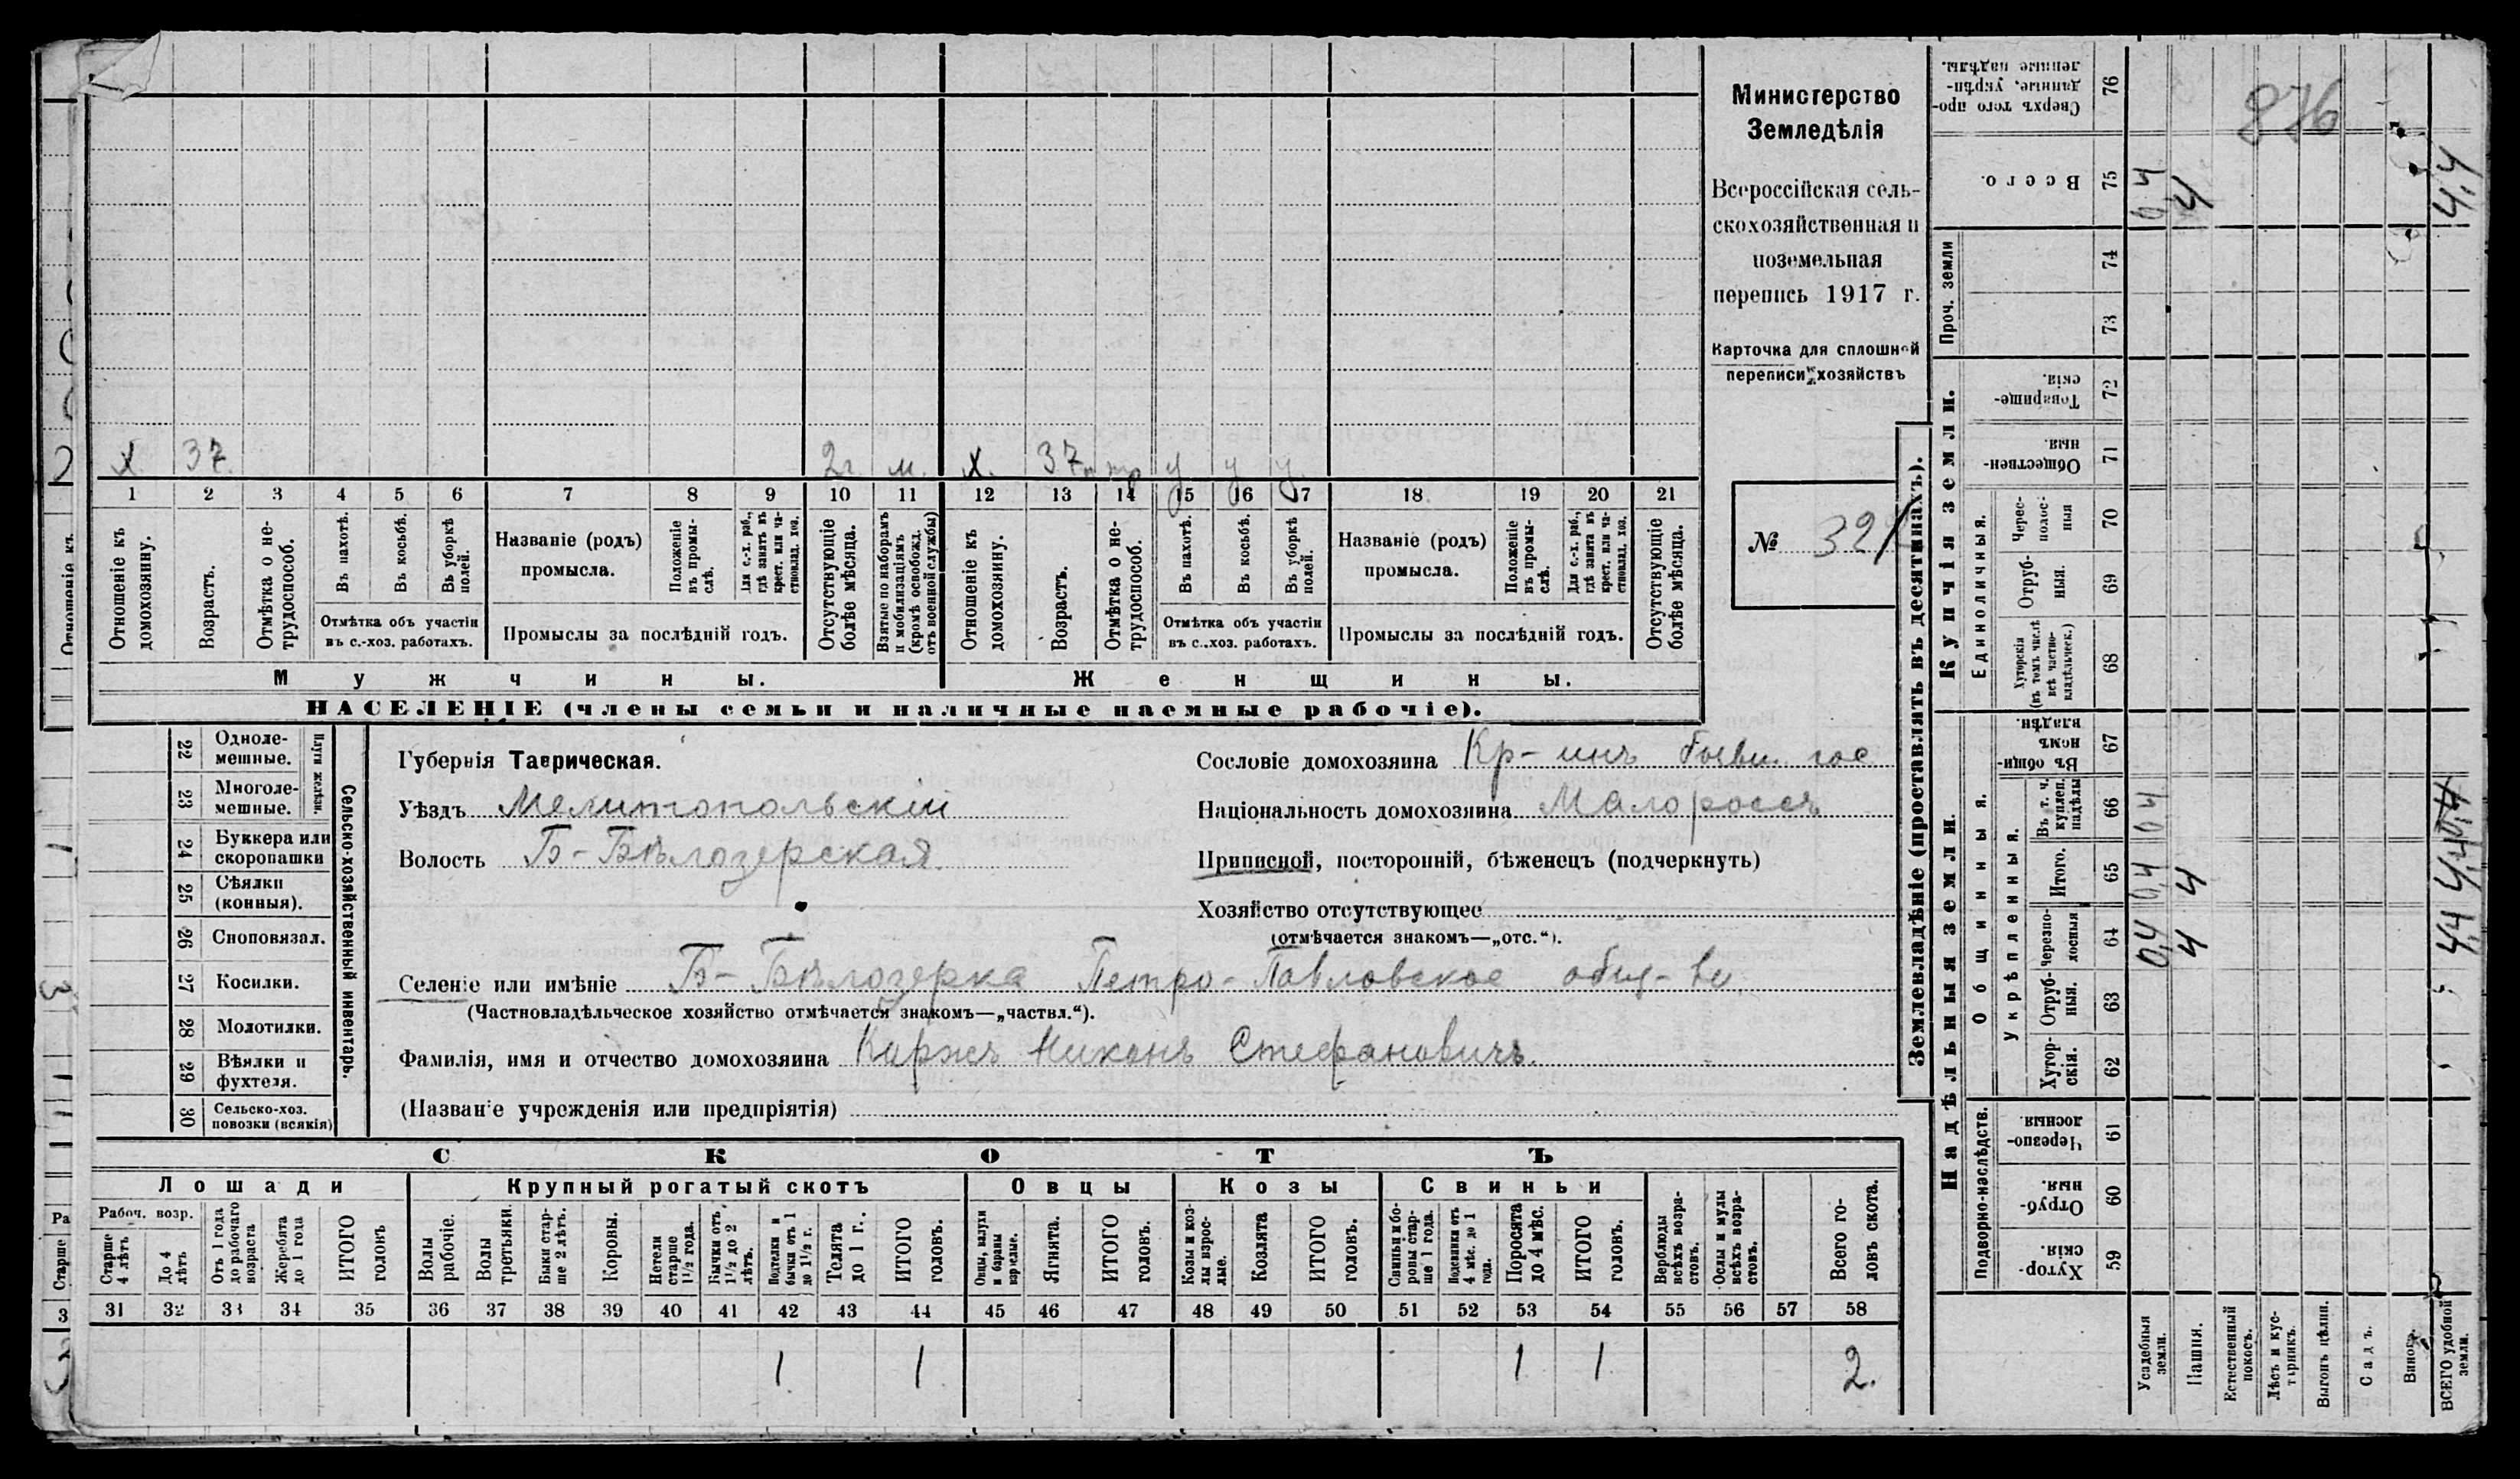 Министерство
Земледѣлія
Всероссійская сель-
скохозяйственная и
поземельная
перепись 1917 г.
Карточка для сплошной
переписи хозяйствъ
№ 321
876
х 37 2г. м. х. 37 у у у
1 2 3 4 5 6 7 8 9 10 11 12 13 14 15 16 17 18 19 20 21
Отношеніе къ домохозяину.
Возрастъ.
Отмѣтка о не-трудоспособ.
Въ пахотѣ.
Въ косьбѣ.
Въ уборкѣ полей.
Отмѣтка объ участіи
въ с.-хоз. работахъ.
Названіе (родъ)
промысла.
Положеніе въ промы-слѣ.
Для с.-х. раб., гдѣ занятъ въ крест. или ча-стновлад. хоз.
Промыслы за послѣдній годъ.
Отсутствующіе болѣе мѣсяца.
Взятые по наборамъ и мобилизаціямъ (кромѣ освобожд. отъ военной службы)
Отношеніе къ домохозяину.
Возрастъ.
Отмѣтка о не-трудоспособ.
Въ пахотѣ.
Въ косьбѣ.
Въ уборкѣ полей.
Отмѣтка объ участіи
въ с.-хоз. работахъ.
Названіе (родъ)
промысла.
Положеніе въ промы-слѣ.
Для с.-х. раб., гдѣ занята въ крест. или ча-стновлад. хоз.
Промыслы за послѣдній годъ.
Отсутствующіе болѣе мѣсяца.
Мужчины. Женщины.
НАСЕЛЕНІЕ (члены семьи и наличные наемные рабочіе).
Сельско-хозяйственный инвентарь.
Плуги желѣзн.
22 Одноле-мешные.
23 Многоле-мешные.
24 Буккера или скоропашки
25 Сѣялки (конныя).
26 Сноповязал.
27 Косилки.
28 Молотилки.
29 Вѣялки и фухтеля.
30 Сельско-хоз. повозки (всякія)
Губернія Таврическая.
Уѣздъ Мелитопольскій
Волость Б-Бѣлозерская
Сословіе домохозяина Кр-инъ бывш. гос
Національность домохозяина Малороссъ
Приписной, посторонній, бѣженецъ (подчеркнуть)
Хозяйство отсутствующее
(отмѣчается знакомъ—„отс.“).
Селеніе или имѣніе Б-Бѣлозерка Петро-Павловское общ-во
(Частновладѣльческое хозяйство отмѣчается знакомъ—„частвл.“).
Фамилія, имя и отчество домохозяина Каржъ Никонъ Стефановичъ
(Названіе учрежденія или предпріятія)
СКОТЪ
Лошади Крупный рогатый скотъ Овцы Козы Свиньи
Рабоч. возр.
Старше 4 лѣтъ
До 4 лѣтъ
Отъ 1 года до рабочаго возраста
Жеребята до 1 года
ИТОГО головъ
Волы рабочіе.
Волы третьяки.
Быки стар-ше 2 лѣтъ.
Коровы.
Нетели старше 1½ года.
Бычки отъ 1½ до 2 лѣтъ.
Подтелки и бычки отъ 1 до 1½ г.
Телята до 1 г.
ИТОГО головъ.
Овцы, валухи и бараны взрослые.
Ягнята.
ИТОГО головъ.
Козы и коз-лы взрос-лые.
Козлята
ИТОГО головъ.
Свиньи и бо-ровы стар-ше 1 года.
Подсвинки отъ 4 мѣс. до 1 года.
Поросята до 4 мѣс.
ИТОГО головъ.
Верблюды всѣхъ возра-стовъ.
Ослы и мулы всѣхъ возра-стовъ.
Всего го-ловъ скота.
31 32 33 34 35 36 37 38 39 40 41 42 43 44 45 46 47 48 49 50 51 52 53 54 55 56 57 58
1 1 1 1 2.
Землевладѣніе (проставлять въ десятинахъ).
Купчія земли.
Надѣльныя земли.
Проч. земли
Единоличныя.
Общинныя.
Укрѣпленныя.
Подворно-наслѣдств.
Сверхъ того про-данные, укрѣп-ленные надѣлы. 76
Всего. 75 0,4 4 4,4
74
73
Товарище-скія. 72
Обществен-ныя. 71
Черес-полос-ныя 70
Отруб-ныя. 69
Хуторскія (въ томъ числѣ всѣ частно-владѣльческ.) 68
Въ общин-номъ владѣн. 67
Въ т. ч. куплен. надѣлы 66 0,4
Итого. 65 0,4 4 4,4
Черезпо-лосныя 64 0,4 4 4,4
Отруб-ныя. 63
Хутор-скія. 62
Черезпо-лосныя 61
Отруб-ныя. 60
Хутор-скія. 59
Усадебныя земли.
Пашня.
Естественный покосъ.
Лѣсъ и кус-тарникъ.
Выгонъ цѣлин.
Садъ.
Виногр.
ВСЕГО удобной земли.